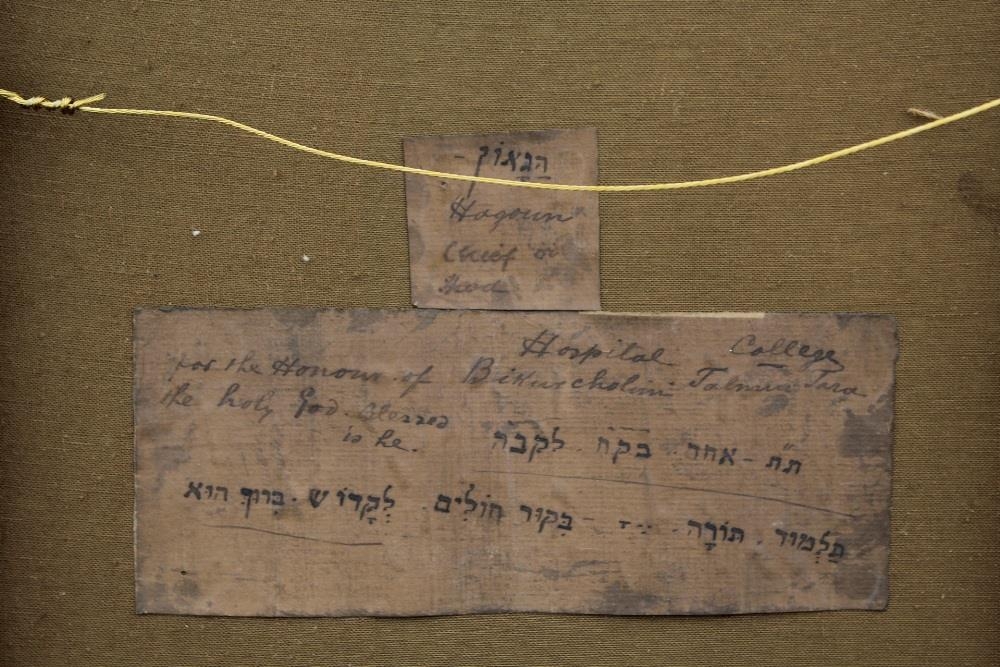 הַגָאוֹן -
Hagoun
Chief or
Head
Hospital College
for the Honour of Bikurcholim Talmud Tora
the holy God blessed
is he.
ת״ת - אחר בקח לקבה
תַלְמוּד תוֹרָה. - בִקוּר חוֹלִים. לְקָדוֹש בָרוּך הוּא